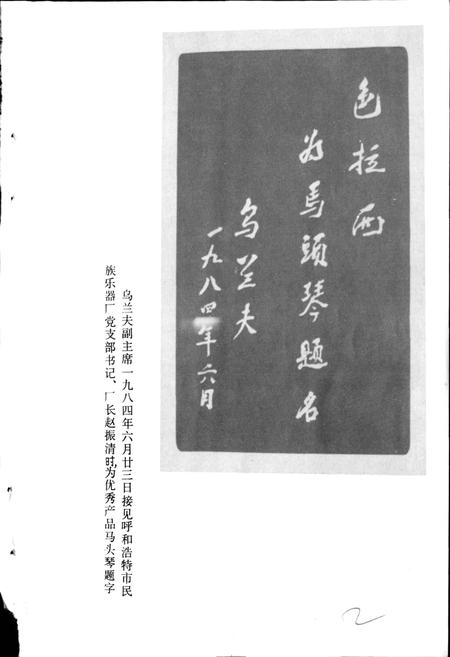 色拉西
为马頭琴题名
乌兰夫
一九八四年六月
乌兰夫副主席一九八四年六月廿三日接见呼和浩特市民
族乐器厂党支部书记、厂长赵振清时,为优秀产品马头琴题字
2